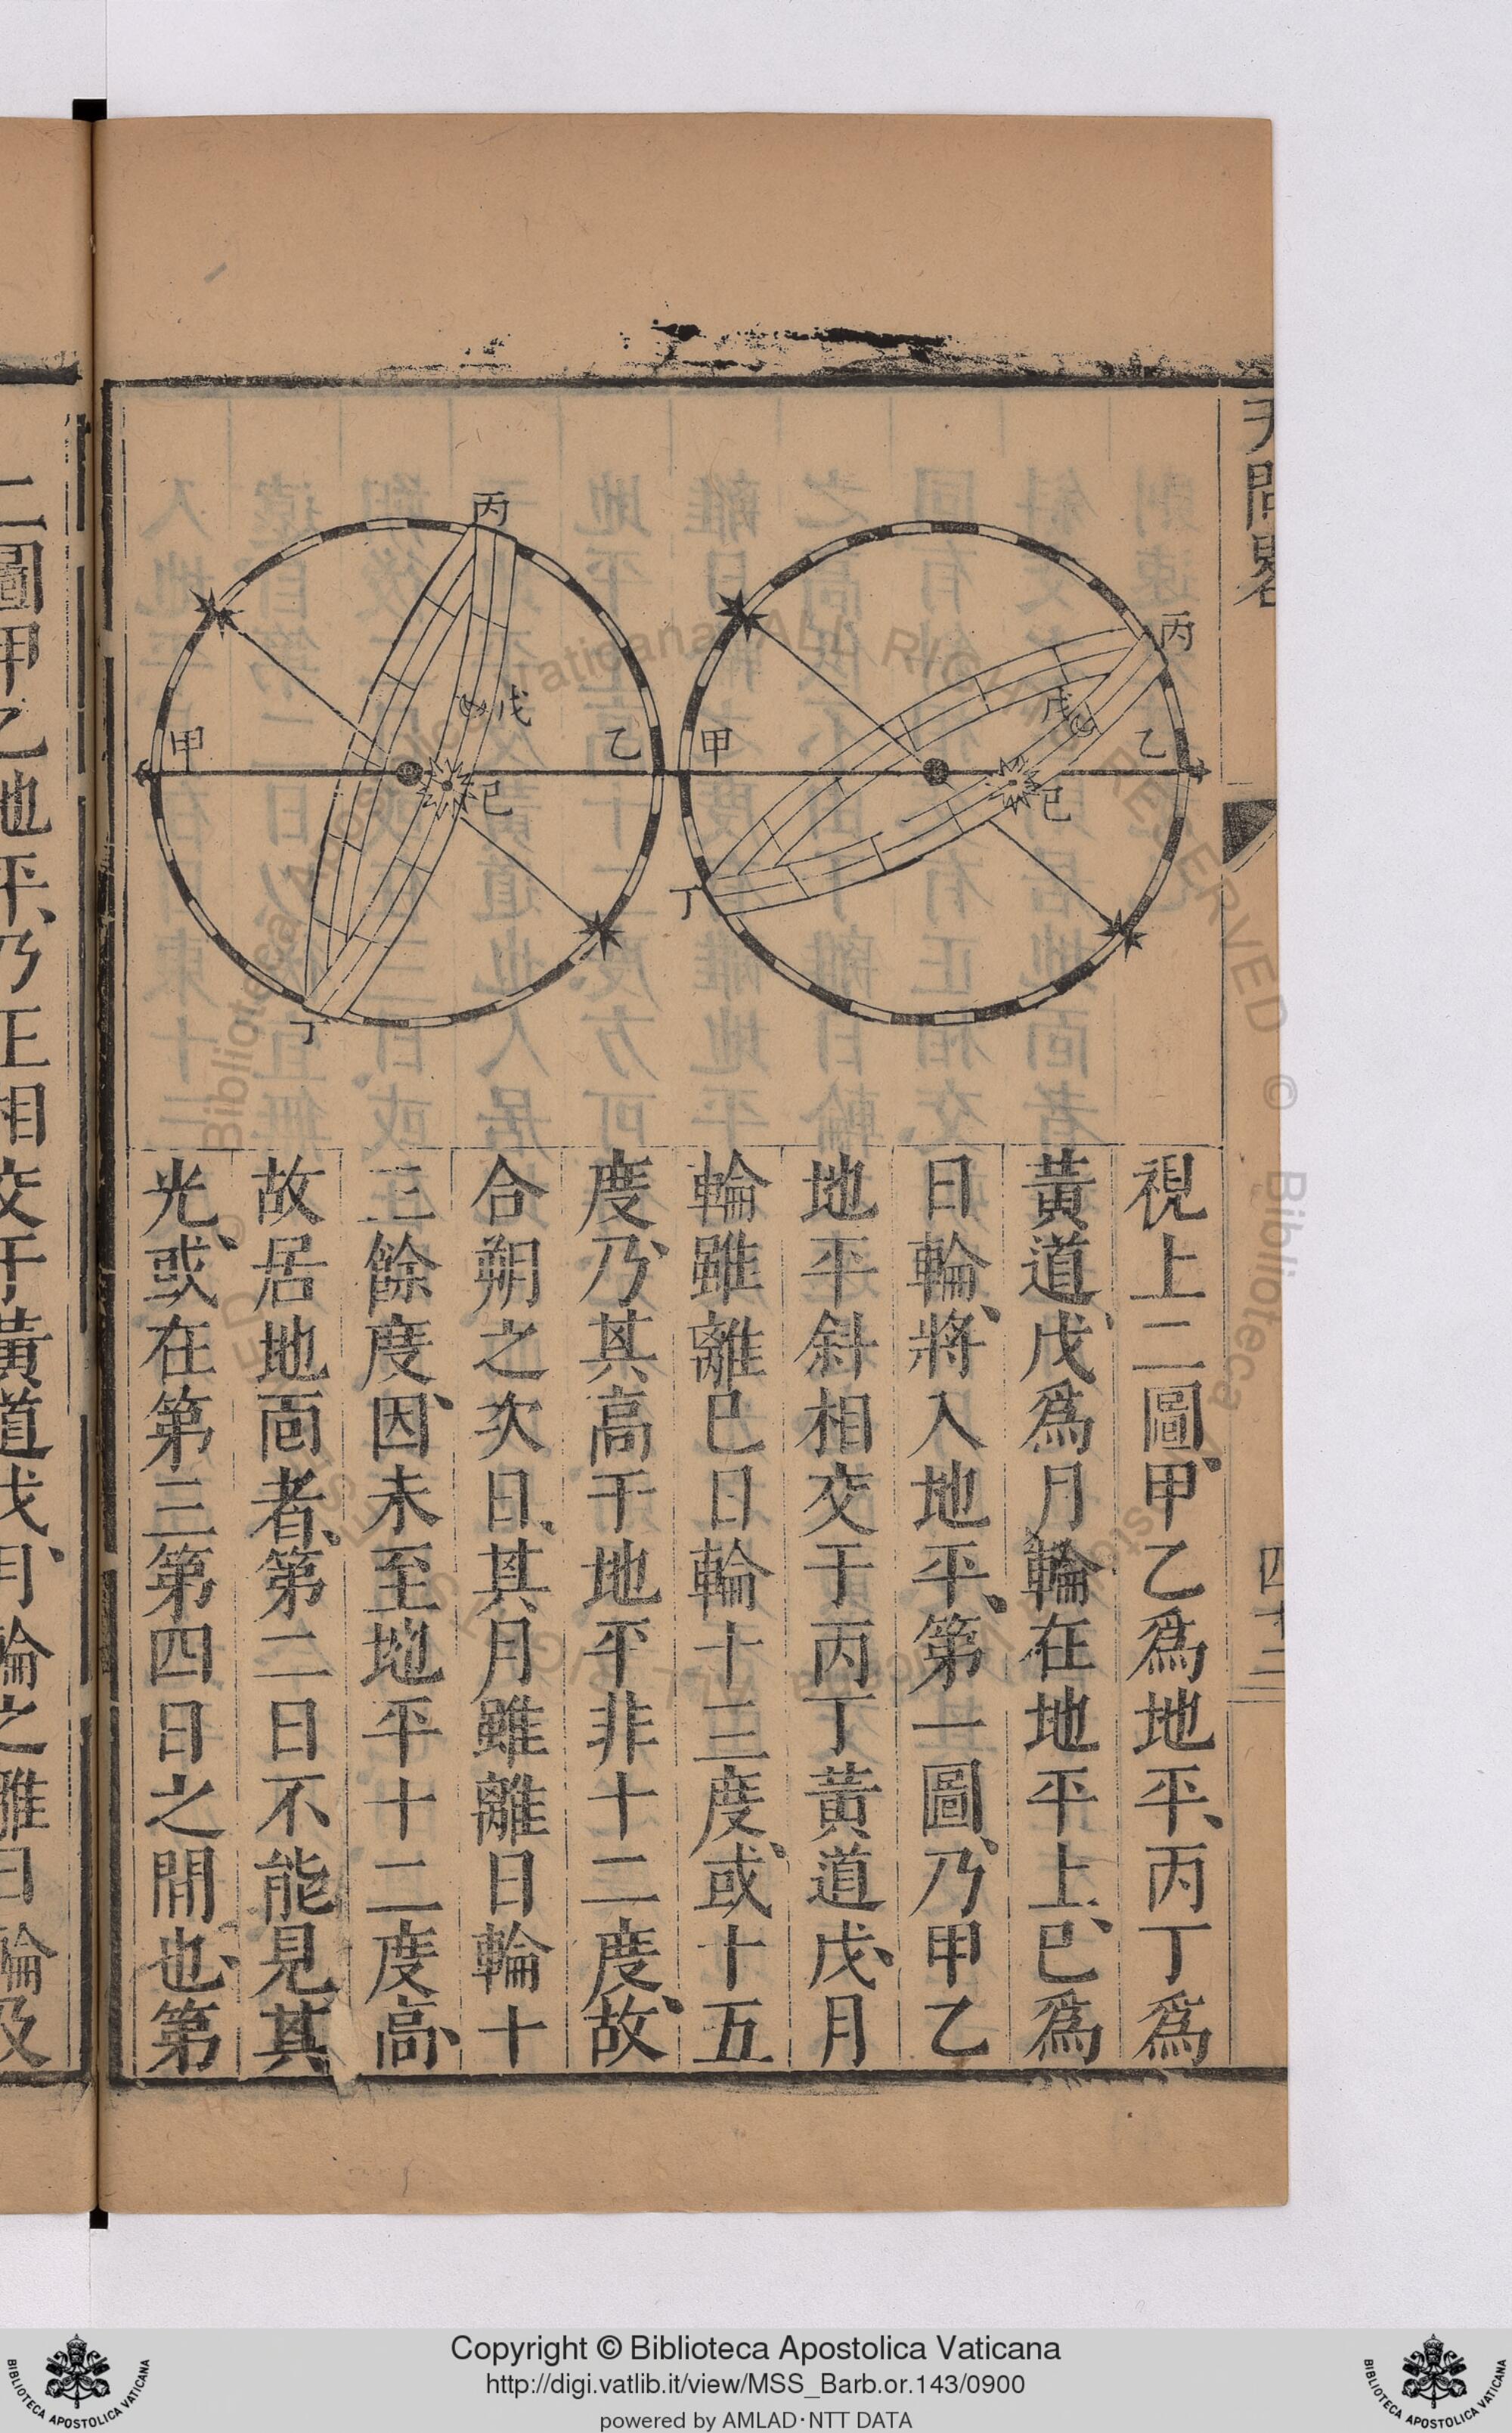 天問畧
四十三
丙
乙
戊
己
甲
丁
丙
乙
戊
己
甲
丁
視上二圖、甲乙爲地平、丙丁爲
黃道、戊爲月輪在地平上、已爲
日輪、將入地平、第一圖、乃甲乙
地平斜相交于丙丁黃道戊、月
輪雖離已日輪十三度、或十五
度、乃其高于地平非十二度、故
合朔之次日、其月雖離日輪十
三餘度、因未至地平十二度高、
故居地面者、第二日不能見其
光、或在第三第四日之間也、第
二圖甲乙地平、乃正相交于黃道戊、月輪之離日輪及
Copyright © Biblioteca Apostolica Vaticana
http://digi.vatlib.it/view/MSS_Barb.or.143/0900
powered by AMLAD·NTT DATA
BIBLIOTECA APOSTOLICA VATICANA
BIBLIOTECA APOSTOLICA VATICANA